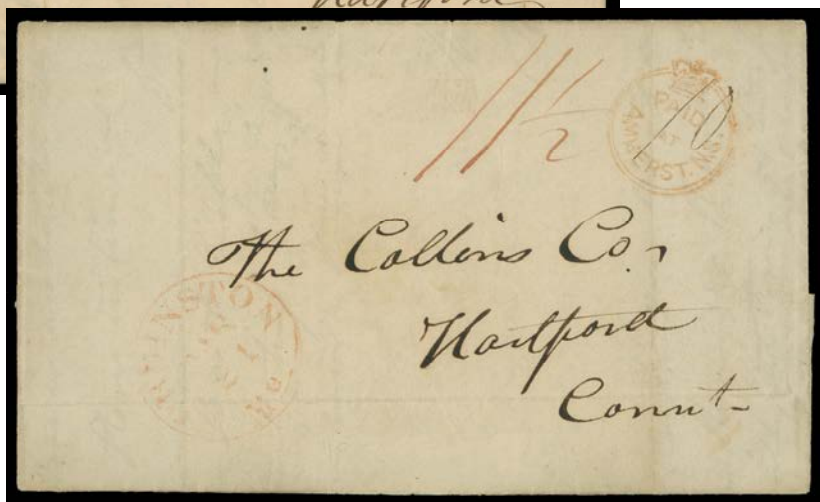 Hartford
11½
PAID
AT
AMHERST. N.S.
10
The Collins Co.
Hartford
Connt-
INSTON